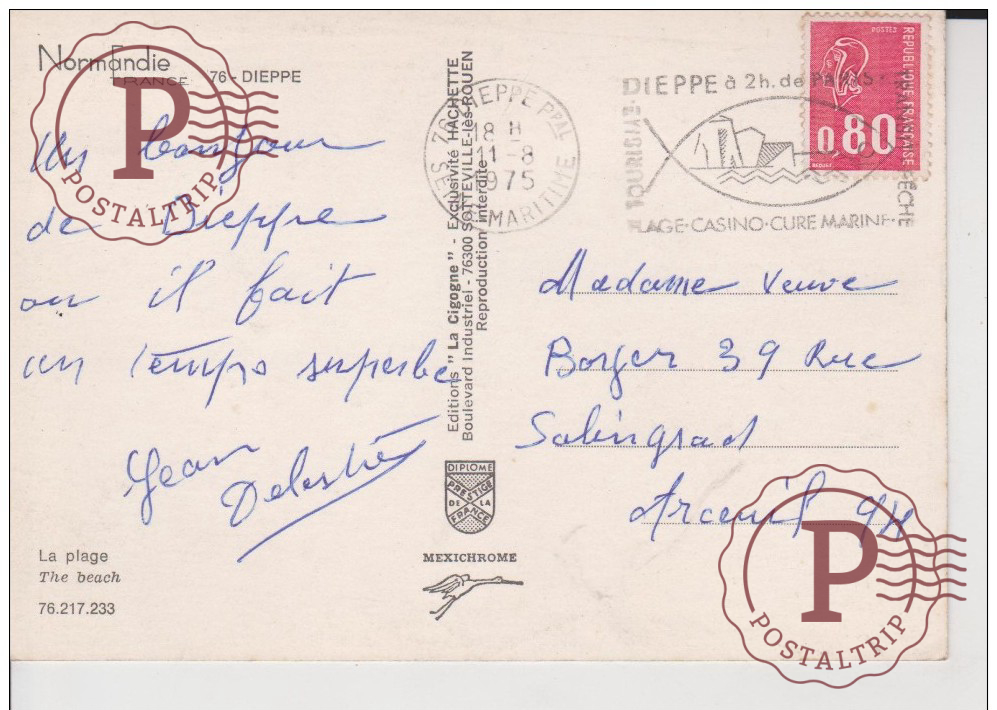 Normandie
FRANCE 76 - DIEPPE
Un bonjour
de Dieppe
ou il fait
un temps superbe
Jean
Delestré
La plage
The beach
76.217.233
Editions "La Cigogne" - Exclusivité HACHETTE
Boulevard Industriel - 76300 SOTTEVILLE-lès-ROUEN
Reproduction interdite
DIPLOME
PRESTIGE
DE LA
FRANCE
MEXICHROME
76 DIEPPE PPAL
18 H
11-8
1975
MARITIME
DIEPPE à 2h. de PARIS
TOURISME
PLAGE·CASINO·CURE MARINE·
POSTES
REPUBLIQUE FRANÇAISE
0,80
Madame Veuve
Borger 39 Rue
Salingrad
Arceuil 94
P
POSTALTRIP
P
POSTALTRIP